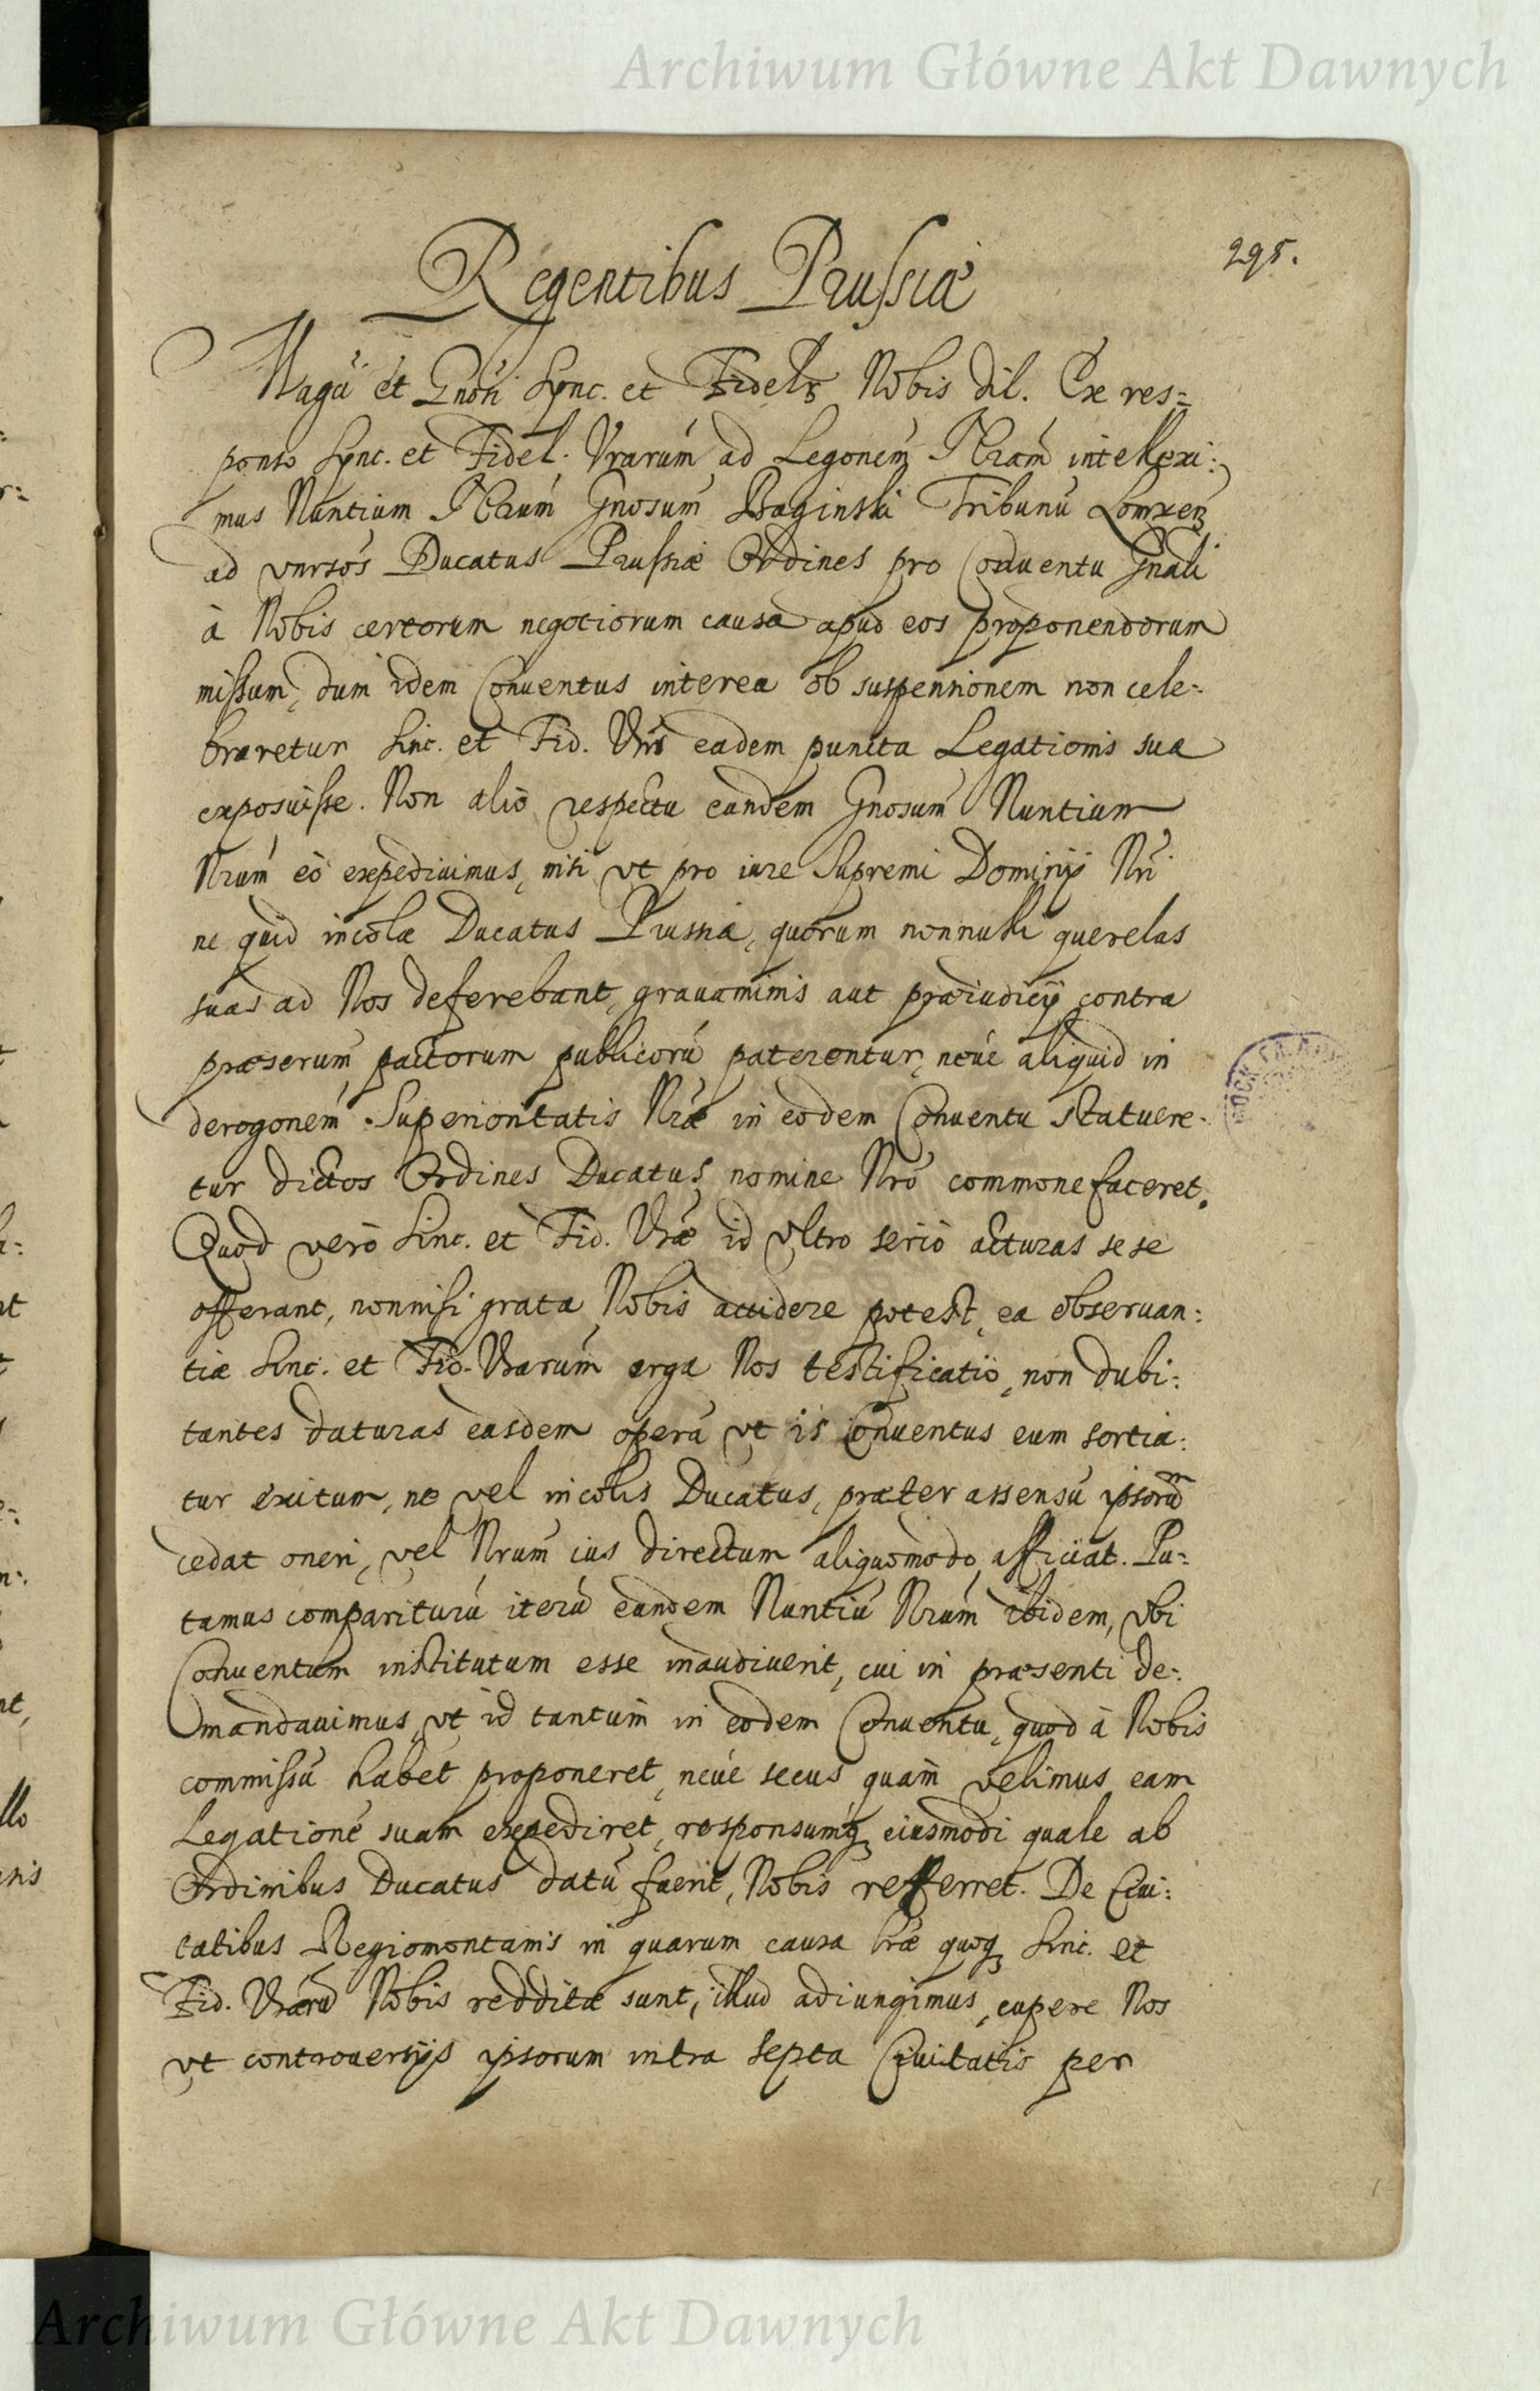 Archiwum Główne Akt Dawnych
295.
Regentibus Prussiæ
Magci et Gnosi Sync. et Fideles Nobis dil. Ex res=
ponso Sync. et Fidel. Vrarum ad Legonem Nram intellexi:
mus Nuntium Nrum Gnosum Baginski Tribunu Lomzen
ad vnrsos Ducatus Prussiæ Ordines pro Conuentu Gnali
à Nobis certorum negotiorum causa apud eos proponendorum
missum, dum idem Conuentus interea ob suspensionem non cele=
braretur Sinc. et Fid. Vris eadem puncta Legationis suæ
exposuisse. Non alio respectu eundem Gnosum Nuntium
Nrum eò expediuimus, nisi vt pro iure Supremi Dominij Nri
ne quid incolæ Ducatus Prussiæ, quorum nonnulli querelas
suas ad Nos deferebant, grauaminis aut præiudicij contra
præscrum pactorum publicorū paterentur, neue aliquid in
derogonem Superioritatis Nræ in eodem Conuentu statuere=
tur dictos Ordines Ducatus nomine Nro commonefaceret.
Quod verò Sinc. et Fid. Vræ id vltro seriò acturas sese
offerant, nonnisi grata Nobis accidere potest, ea obseruan:
tiæ Sinc. et Fid. Vrarum erga Nos testificatio, non dubi:
tantes daturas easdem operā vt is Conuentus eum sortia:
tur exitum, ne vel incolis Ducatus, præter assensū ipsorum
cedat oneri, vel Nrum ius directum aliquomodo afficiat. Pu=
tamus compariturū iterū eundem Nuntiū Nrum ibidem, vbi
Conuentum institutum esse inaudiuerit, cui in præsenti de=
mandauimus, vt id tantum in eodem Conuentu, quod à Nobis
commissū habet proponeret, neue secus quàm velimus eam
Legationē suam expediret, responsumq; eiusmodi quale ab
Ordinibus Ducatus datū fuerit, Nobis referret. De Ciui:
tatibus Regiomontanis in quarum causa lræ quoq; Sinc. et
Fid. Vrarū Nobis redditæ sunt, illud adiungimus, cupere Nos
vt controuersijs ipsorum intra septa Ciuitatis per
Archiwum Główne Akt Dawnych